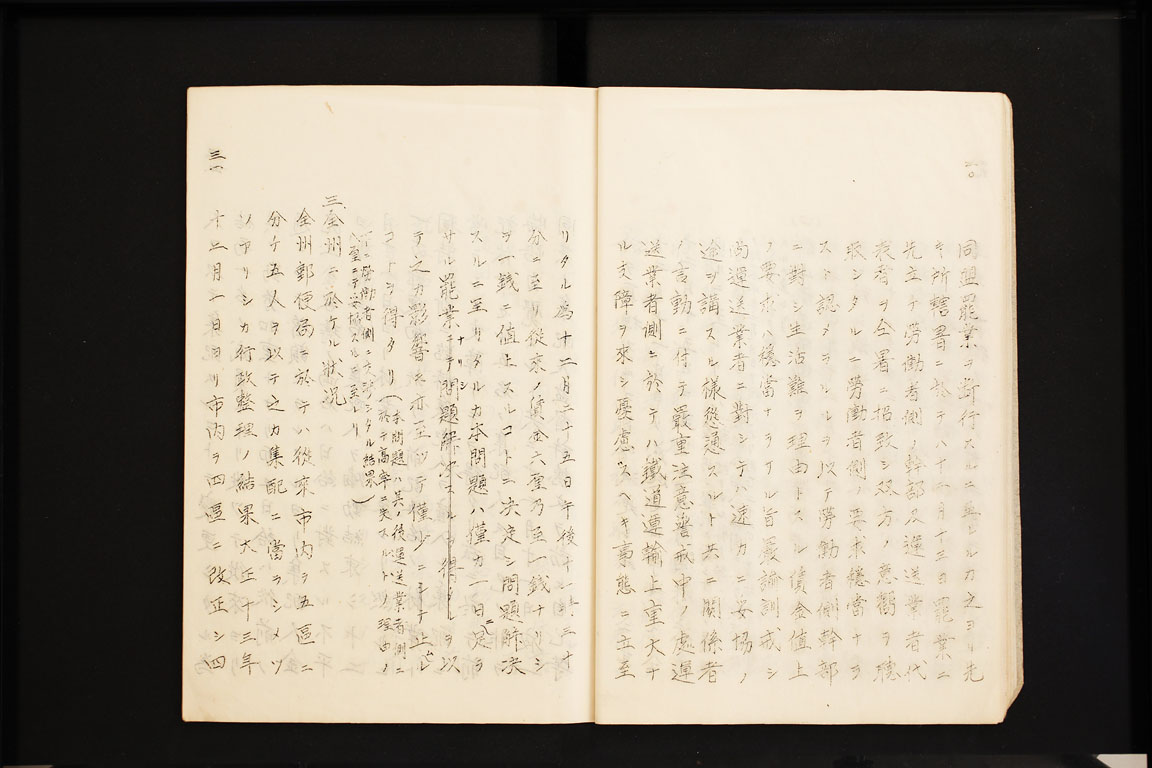 三〇
同盟罷業ヲ断行スルニ至レルカ之ヨリ先
キ所轄署ニ於テハ十二月十三日罷業ニ
先立チ労働者側ノ幹部及運送業者代
表者ヲ仝署ニ招致シ双方ノ意嚮ヲ聴
取シタルニ労働者側ノ要求穏當ナラ
スト認メラルヽヲ以テ労働者側幹部
ニ對シ生活難ヲ理由トスル賃金値上
ノ要求ハ穏當ナラサル旨厳諭訓戒シ
尚運送業者ニ對シテハ速カニ妥協ノ
途ヲ講スル様慫通スルト共ニ関係者
ノ言動ニ付テ厳重注意警戒中ノ處運
送業者側ニ於テハ鐵道運輸上重大ナ
ル支障ヲ來シ憂慮スヘキ事態ニ立至
リタル為十二月二十五日午後十時三十
分ニ至リ従來ノ賃金六厘乃至一銭ナリシ
ヲ一銭ニ値上スルコトニ決定シ問題解決
スルニ至リタルカ本問題ハ僅カ一日ニ足ラ
サル罷業ナリシ
ニテ問題解決スルヲ得タルヲ以
テ之カ影響モ亦至ツテ僅少ニシテ止ム
コトヲ得タリ(本問題ハ其ノ後運送業者側ニ
於テ高率ニ失スルトノ理由ノ
下ニ労働者側ニ交渉シタル結果
八厘ニテ妥協スルニ至レリ)
三、全州ニ於ケル状況
全州郵便局ニ於テハ従來市内ヲ五區ニ
分ケ五人ヲ以テ之カ集配ニ當ラシメツ
ツアリシカ行政整理ノ結果大正十三年
十二月一日ヨリ市内ヲ四區ニ改正シ四
三一